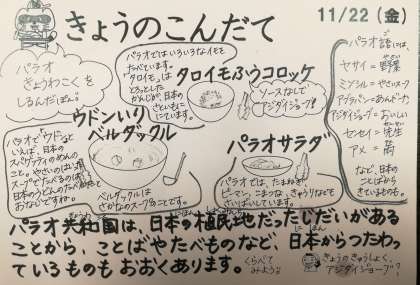 きょうのこんだて
11/22(金)
パラオ
きょうわこくを
しるんだぽん!
パラオではいろいろなイモを
たべています。
「タロイモ」は
ねっとりした
かんじが、日本の
さといもに
にています。
タロイモふうコロッケ
ソースなしで
アジダイジョーブ!
パラオ語には、
ヤサイ=野菜
ミソシル=やさいスープ
アブラパン=あんドーナツ
アジダイジョーブ=おいしい
センセイ=先生
アメ=雨
など、日本の
ことばから
きているものも。
ウドンいり
ベルダックル
パラオで「ウドン」と
いえば、日本の
スパゲティのめんの
こと。やさいのはいった
スープでたべるのは
日本のうどんのたべかたと
おなじですね。
ベルダックルは
さかなのスープのことです。
パラオサラダ
パラオでは、たまねぎ、
ピーマン、なす、きゅうりなども
さいばいしています。
パラオ共和国は、日本の植民地だったじだいがある
ことから、ことばやたべものなど、日本からつたわっ
ているものもおおくあります。
くらべて
みよう♪
きょうのきゅうしょく、
アジダイジョーブ?